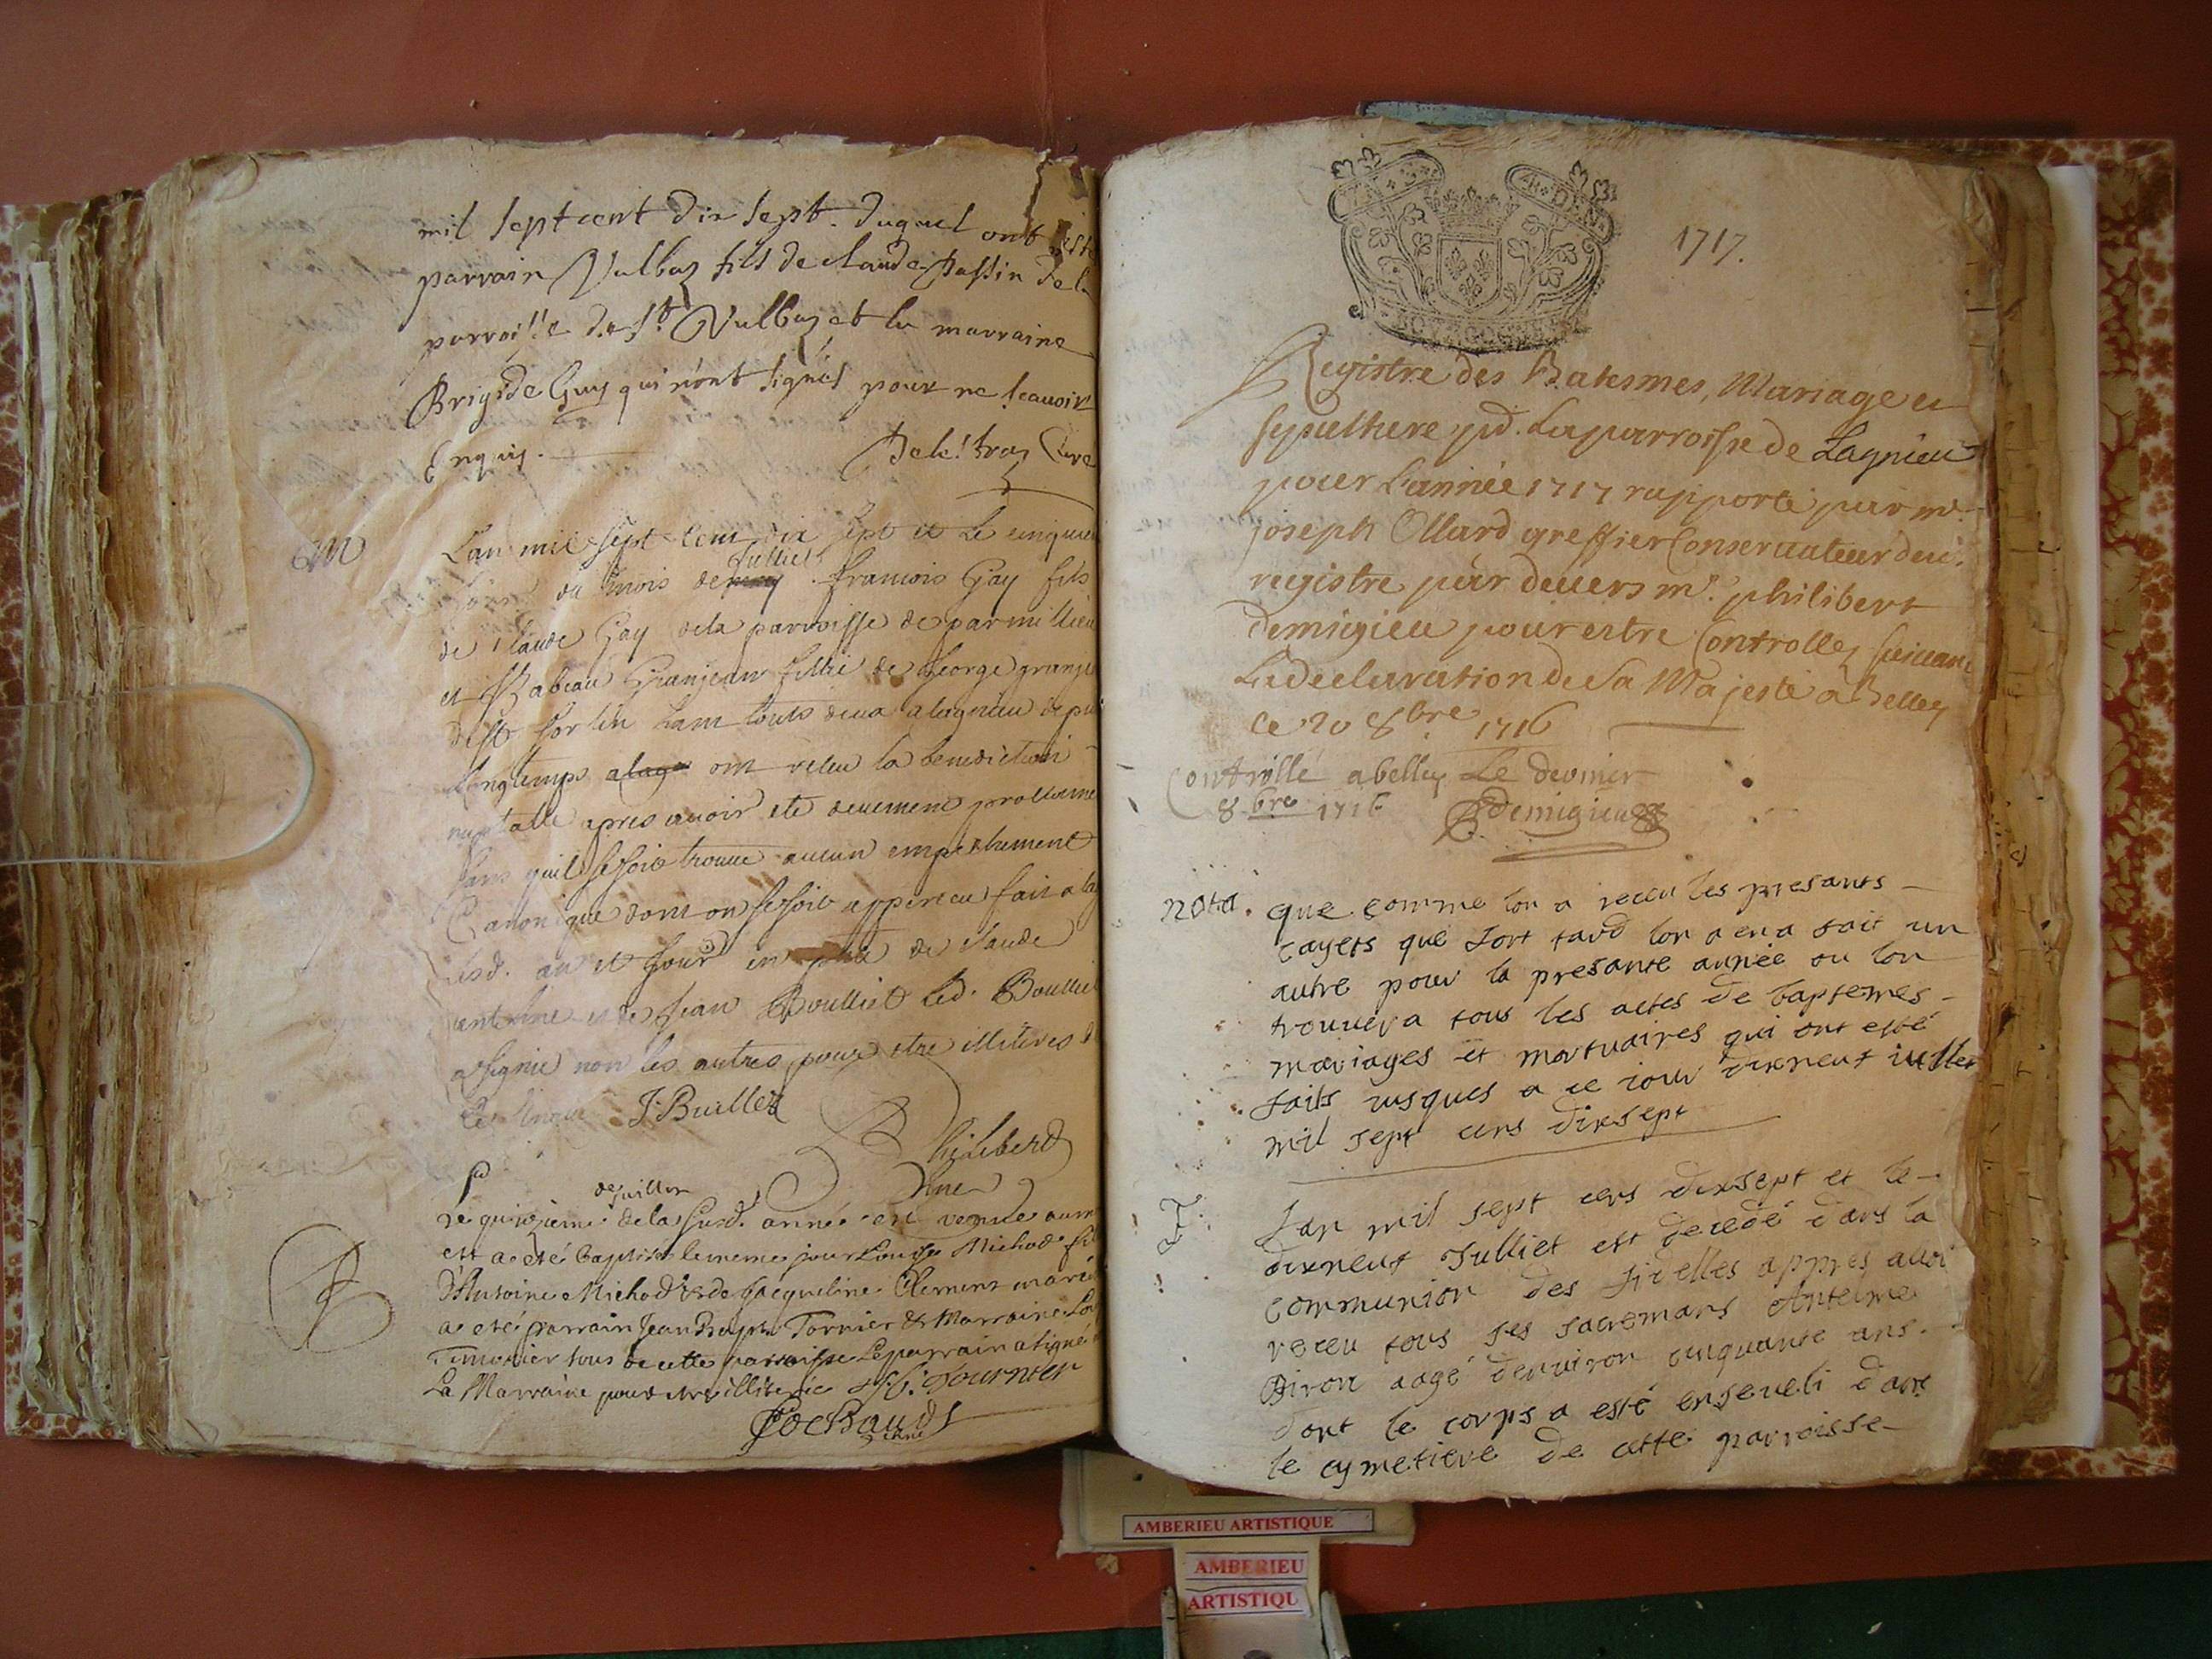 mil sept cent dix sept. duquel ont este
parrain Vulbaz fils de claude Passin de la
parroisse de St Vulbaz et la marraine
Brigide Guy qui n'ont signés pour ne scauoir
Enquis. Curé
m
Lan mil sept cent dix sept et le cinquie
jour du mois de Julliet francois Gay fils
de Claude Gay de la parroisse de parmillieu
et Babeau Granjean fillie de George granje
de St Sorlin tous deux a lagnieu depui
Longtemps alag ont receu la benediction
nuptalle apres auoir ete deuement proclame
sans quil se soit trouué aucun empechement
Canonique dont on se soit apperceu fait a lag
lesd. an et jour en de Claude
antelme et de Jean Boulliet Led. Boulliet
a signié non les autres pour etre illitéres d
J. Buillet
Philiberd
de juillet
le quinzieme de la susd. année est venue au m
et a eté baptisée le meme jour Louise Michod fil
d'Antoine Michod & de Jacqueline Clement marié
a eté parrain Jean Bapte Tornier & Marraine Lou
Timonier tous de cette parroisse Le parrain a signé
La Marraine pour etre illiterée Tournier
1717.
Registre des Batesmes, Mariage et
sepulture pd. La parroisse de Lagnieu
pour L'année 1717 rapporté par mr.
joseph Ollard greffier Conseruateur desd.
registre par deuers mr. philibert
Demigieu pour estre Controllez suiuant
La declaration de Sa Majesté a Belley
ce 20 8bre 1716
Controllé a belley Le dernier
8bre 1716 Demigieu
nota. que comme lon a receu les presants
cayers que fort tard lon a en a fait un
autre pour la presante année ou lon
trouuera tous les actes de baptemes
mariages et mortuaires qui ont esté
faits iusques a ce iour dixneuf iulliet
mil sept cens dixsept
Lan mil sept cens dixsept et le
dixneuf Julliet est decedé dans la
communion des fidelles appres auoi
receu tous ses sacremans Antelme
Biron aagé denuiron cinquante ans.
dont le corps a esté enseueli dans
le cymetiere de cette parroisse
AMBERIEU ARTISTIQUE
AMBERIEU
ARTISTIQU